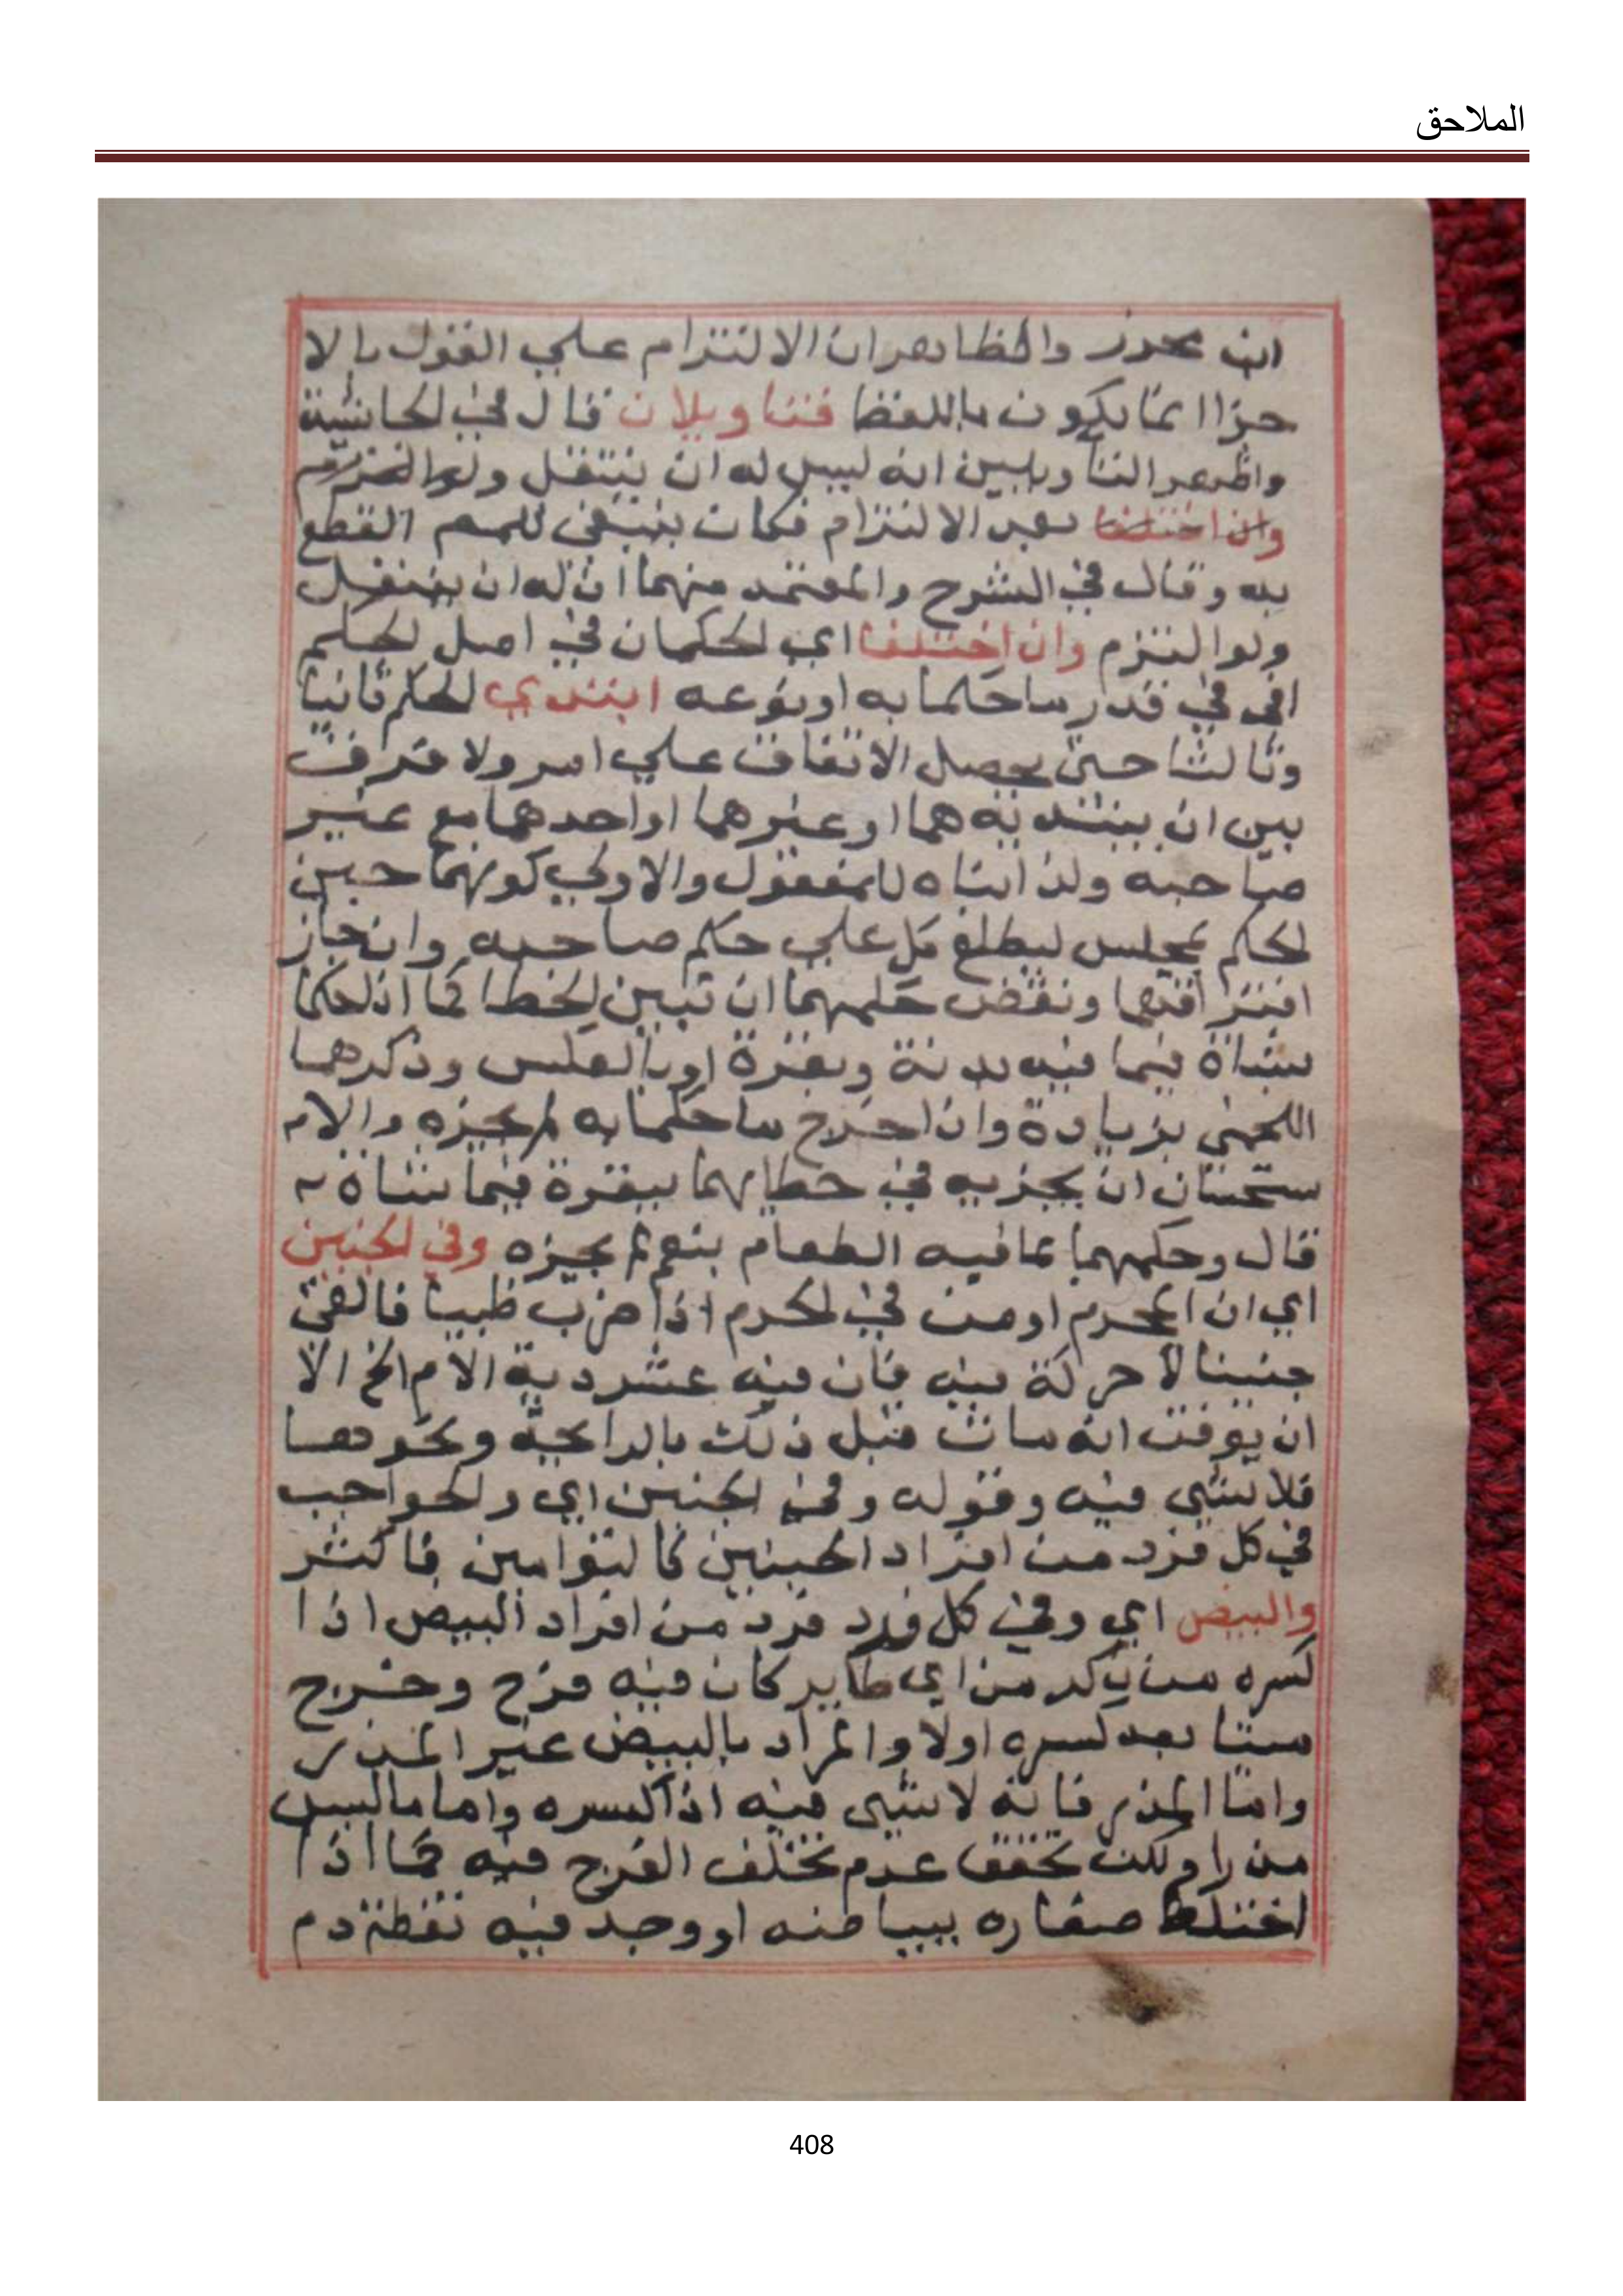 الملاحق
ابن محرز والظاهر ان الالتزام علي القول بالا
جزا انما يكون باللفظ فتاويلان قال في الحاشية
واظهر التاويلين انه ليس له ان ينتقل ولو التزم
وان اختلفا بعد الالتزام فكان ينبغي للمص القطع
به وقال في الشرح والمعتمد منهما ان له ان ينتقل
ولو التزم وان اختلفا اي الحكمان في اصل الحكم
او في قدر ما حكما به او نوعه ابتدي الحكم ثانيا
وثالثا حتى يحصل الاتفاق علي امر ولا فرق
بين ان يبتديه هما او غيرهما او احدهما مع غير
صاحبه ولذا بناه للمفعول والاولي كونهما حين
الحكم بمجلس ليطلع كل علي حكم صاحبه وان جاز
افتراقهما ونقض حكمهما ان تبين الخطا كما اذا حكما
بشاة فيما فيه بدنة وبقرة او بالعكس وذكرهما
اللخمي بزيادة وان اخرج ما حكما به لم يجزه والا
ستحسان ان يجزيه في خطايهما ببقرة فيما شاة
قال وحكمهما بما فيه الطعام بنعم لم يجزه وفي الجنين
اي ان المحرم او من في الحرم اذا ضرب ظبيا فالقى
جنينا لا حركة فيه فان فيه عشر دية الام الخ الا
ان يوقن انه مات قبل ذلك بالرايحة ونحوها
فلا شي فيه وقوله وفي الجنين اي والواجب
في كل فرد من افراد الجنين كالتوامين فاكثر
والبيض اي وفي كل فرد فرد من افراد البيض اذا
كسره من ذكر من اي طاير كان فيه فرخ وخرج
ميتا بعد كسره اولا والمراد بالبيض غير المذر
واما المذر فانه لا شي فيه اذا كسره واما ما ليس
مذرا ولكن تحقق عدم تخلف الفرخ فيه كما اذا
اختلط صفاره ببياضه او وجد فيه نقطة دم
408